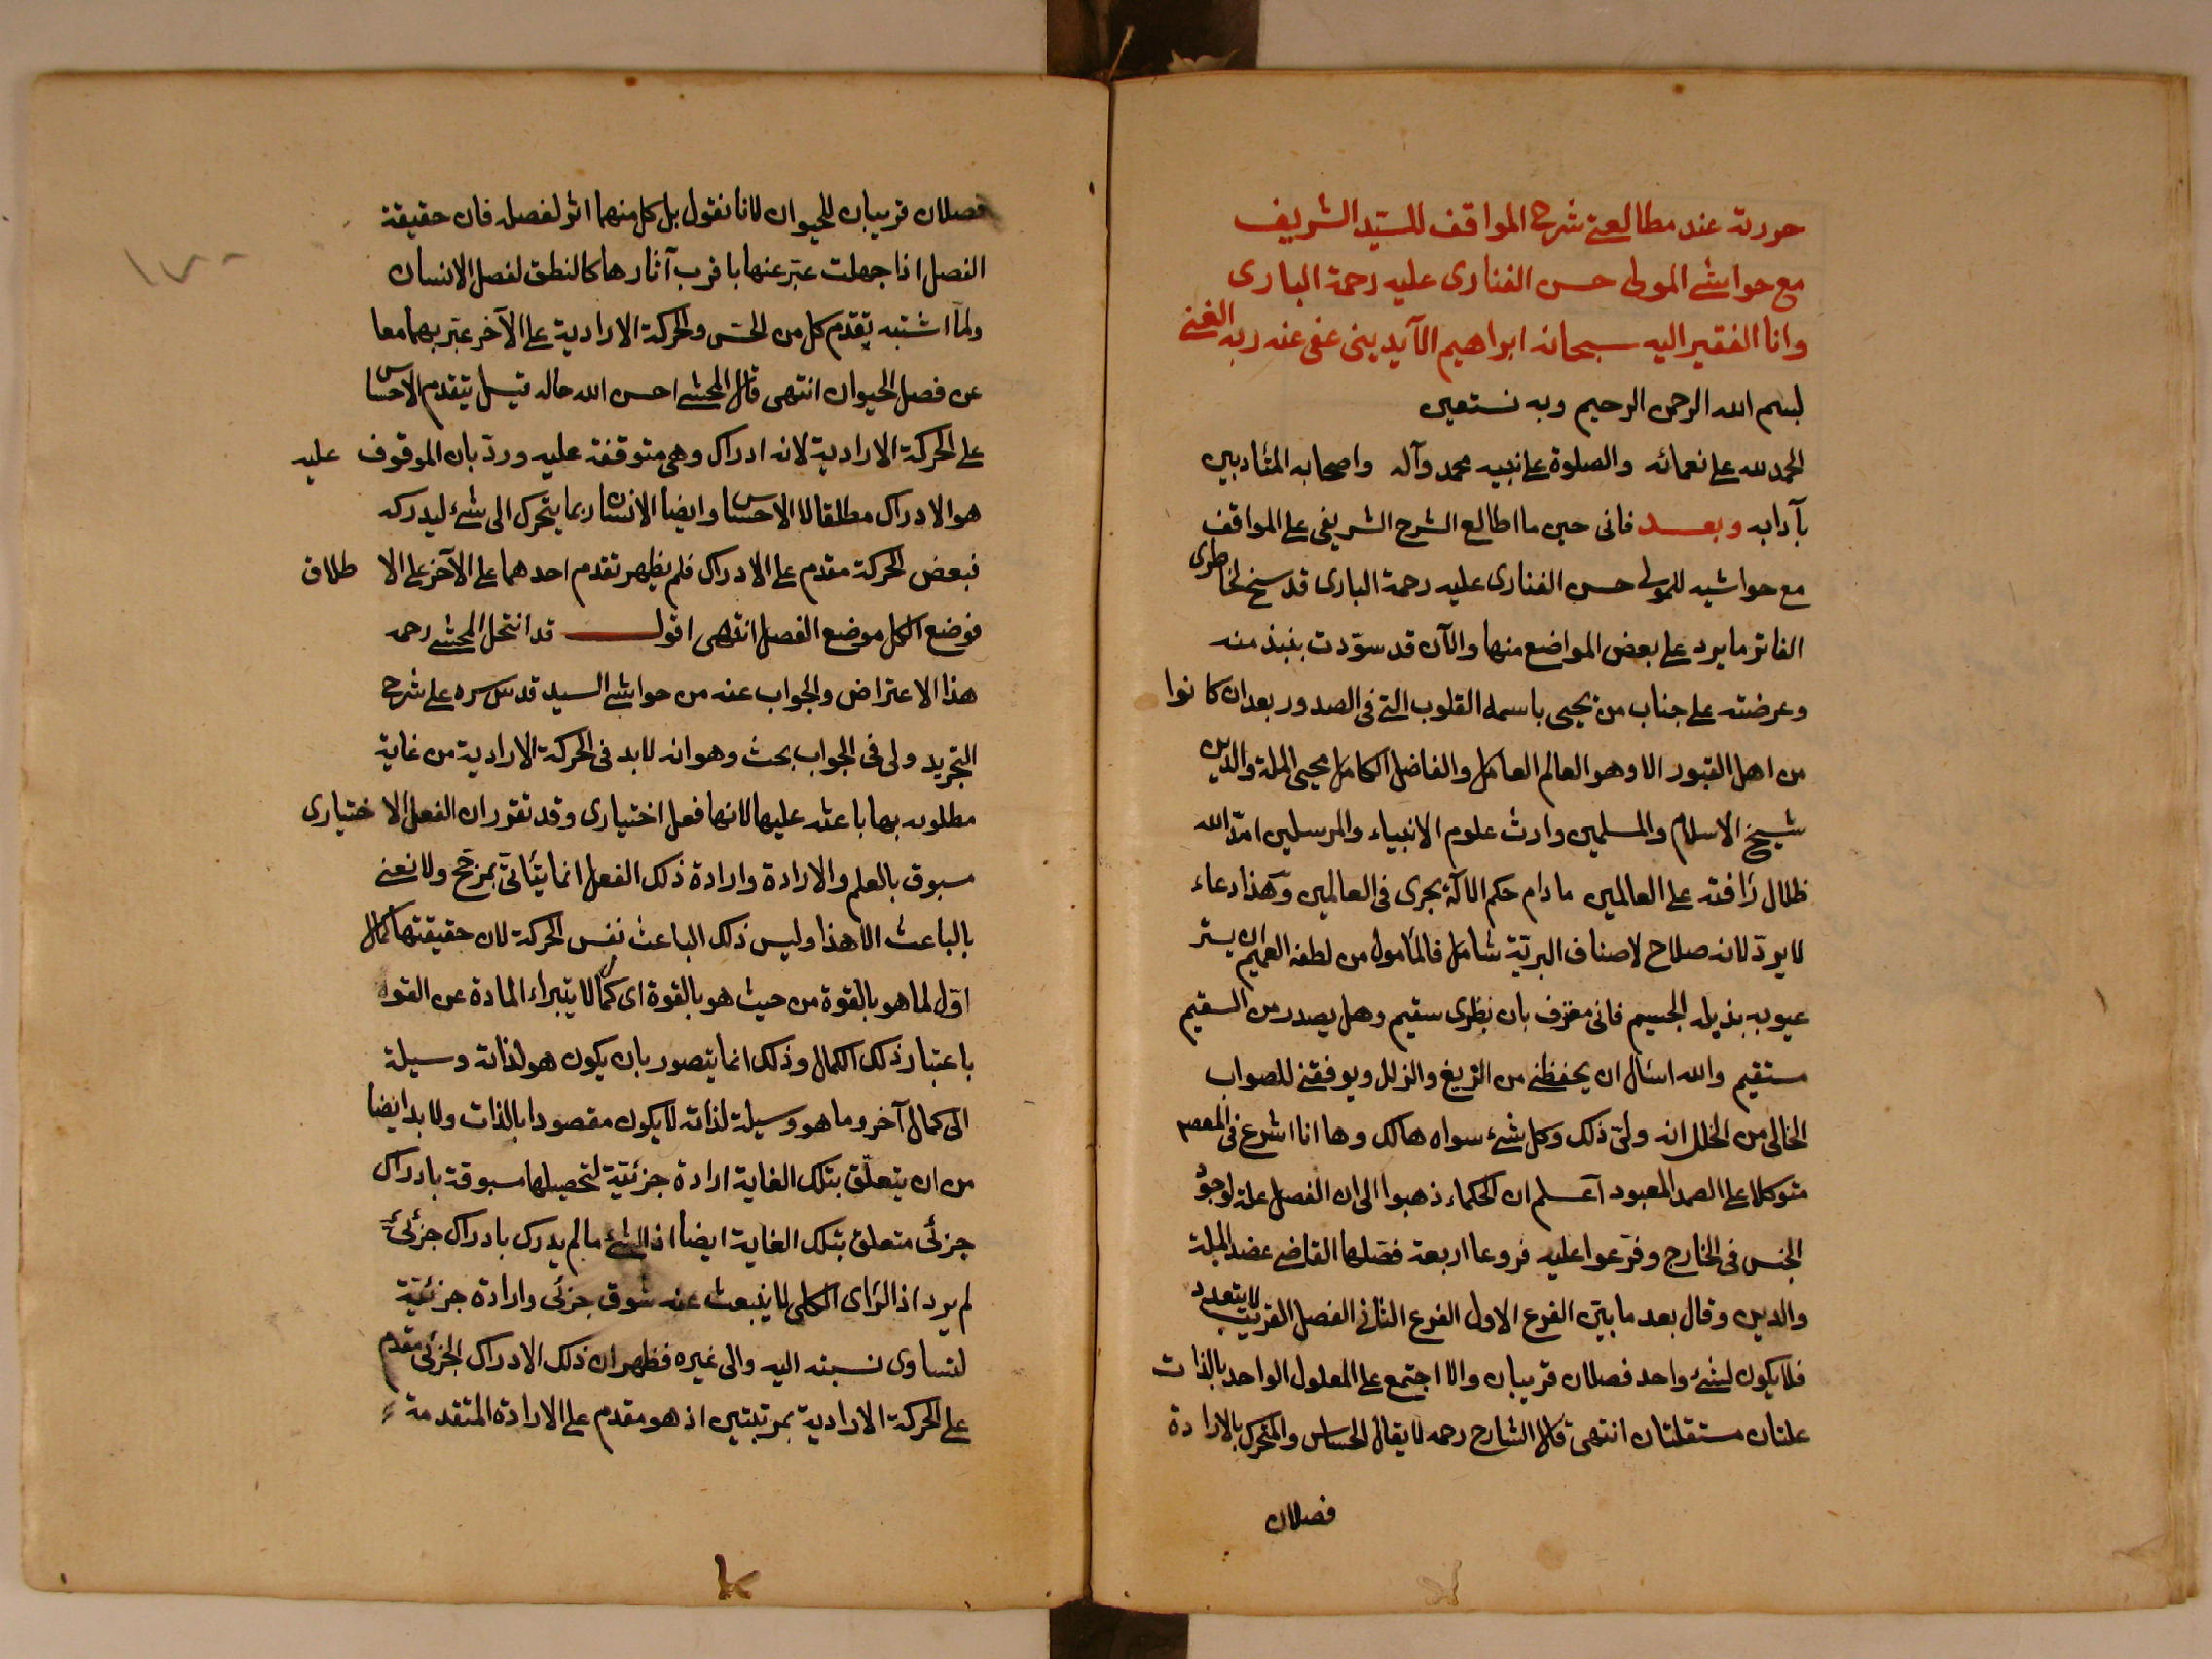 حررته عند مطالعتى شرح المواقف للسيّد الشريف
مع حواشى المولى حسن الفنارى عليه رحمة البارى
وانا الفقير اليه سبحانه ابراهيم الآيدينى عفى عنه ربه الغنى
بسم الله الرحمن الرحيم وبه نستعين
الحمد لله على نعمائه والصلوة على نبيه محمد وآله واصحابه المتأدبين
بآدابه وبعد فانى حين ما اطالع الشرح الشريفى على المواقف
مع حواشيه للمولى حسن الفنارى عليه رحمة البارى قد سنح لخاطرى
الفاتر ما يرد على بعض المواضع منها والآن قد سوّدت بنبذ منه
وعرضته على جناب من يحيى باسمه القلوب التى فى الصدور بعد ان كانوا
من اهل القبور الا وهو العالم العامل والفاضل الكامل محيى الملة والدين
شيخ الاسلام والمسلمين وارث علوم الانبياء والمرسلين امدّ الله
ظلال رأفته على العالمين ما دام حكم الاكۀ يجرى فى العالمين وهذا دعاء
لا يردّ لانه صلاح لاصناف البريّة شامل فالمأمول من لطفه العميم ان يستر
عيوبه بذيله الجسيم فانى معترف بان نظرى سقيم وهل يصدر من السقيم
مستقيم والله اسأل ان يحفظنى من الزيغ والزلل ويوفقنى للصواب
الخالى من الخلل انه ولىّ ذلك وكل شئ سواه هالك وها انا اشرع فى المقصود
متوكلا على الصمد المعبود اعلم ان الحكماء ذهبوا الى ان الفصل علة لوجود
الجنس فى الخارج وفرّعوا عليه فروعا اربعة فصّلها القاضى عضد الملة
والدين وقال بعد ما بيّن الفرع الاول الفرع الثانى الفصل القريب لا يتعدد
فلا يكون لشئ واحد فصلان قريبان والا اجتمع على المعلول الواحد بالذات
علتان مستقلتان انتهى قال الشارح رحمه لا يقال الحساس والمتحرك بالارادة
فصلان
فصلان قريبان للحيوان لانا نقول بل كل منهما اثر لفصله فان حقيقة
الفصل اذا جهلت عبّر عنها باقرب آثارها كالنطق لفصل الانسان
ولمّا اشتبه تقدم كل من الحسّ والحركة الارادية على الآخر عبّر بهما معا
عن فصل الحيوان انتهى قال المحشى احسن الله حاله قيل يتقدم الاحساس
على الحركة الارادية لانه ادراك وهى متوقفة عليه وردّ بان الموقوف عليه
هو الادراك مطلقا لا الاحساس وايضا الانسان ربما يتحرك الى شئ ليدركه
فبعض الحركة مقدم على الادراك فلم يظهر تقدم احدهما على الآخر على الاطلاق
فوضع الكل موضع الفصل انتهى اقول قد انتحل المحشى رحمه
هذا الاعتراض والجواب عنه من حواشى السيد قدس سره على شرح
التجريد ولى فى الجواب بحث وهو انه لا بد فى الحركة الارادية من غاية
مطلوبه بها باعثه عليها لانها فعل اختيارى وقد تقرر ان الفعل الاختيارى
مسبوق بالعلم والارادة وارادة ذلك الفعل انما يتأتى بمرجّح ولا نعنى
بالباعث الا هذا وليس ذلك الباعث نفس الحركة لان حقيقتها كمال
اوّل لما هو بالقوة من حيث هو بالقوة اى كمال لا يتبراء المادة عن القوة
باعتبار ذلك الكمال وذلك انما يتصور بان يكون هو لذاته وسيلة
الى كمال آخر وما هو وسيلة لذاته لا يكون مقصودا بالذات ولا بد ايضا
من ان يتعلّق بتلك الغاية ارادة جزئيّة لتحصيلها مسبوقة بادراك
جزئى متعلق بتلك الغاية ايضا اذ الشئ ما لم يدرك بادراك جزئى
لم يرد اذ الرأى الكلى لا ينبعث عنه شوق جزئى وارادة جزئيّة
لتساوى نسبته اليه والى غيره فظهر ان ذلك الادراك الجزئى مقدم
على الحركة الارادية بمرتبتين اذ هو مقدم على الارادة المتقدمة